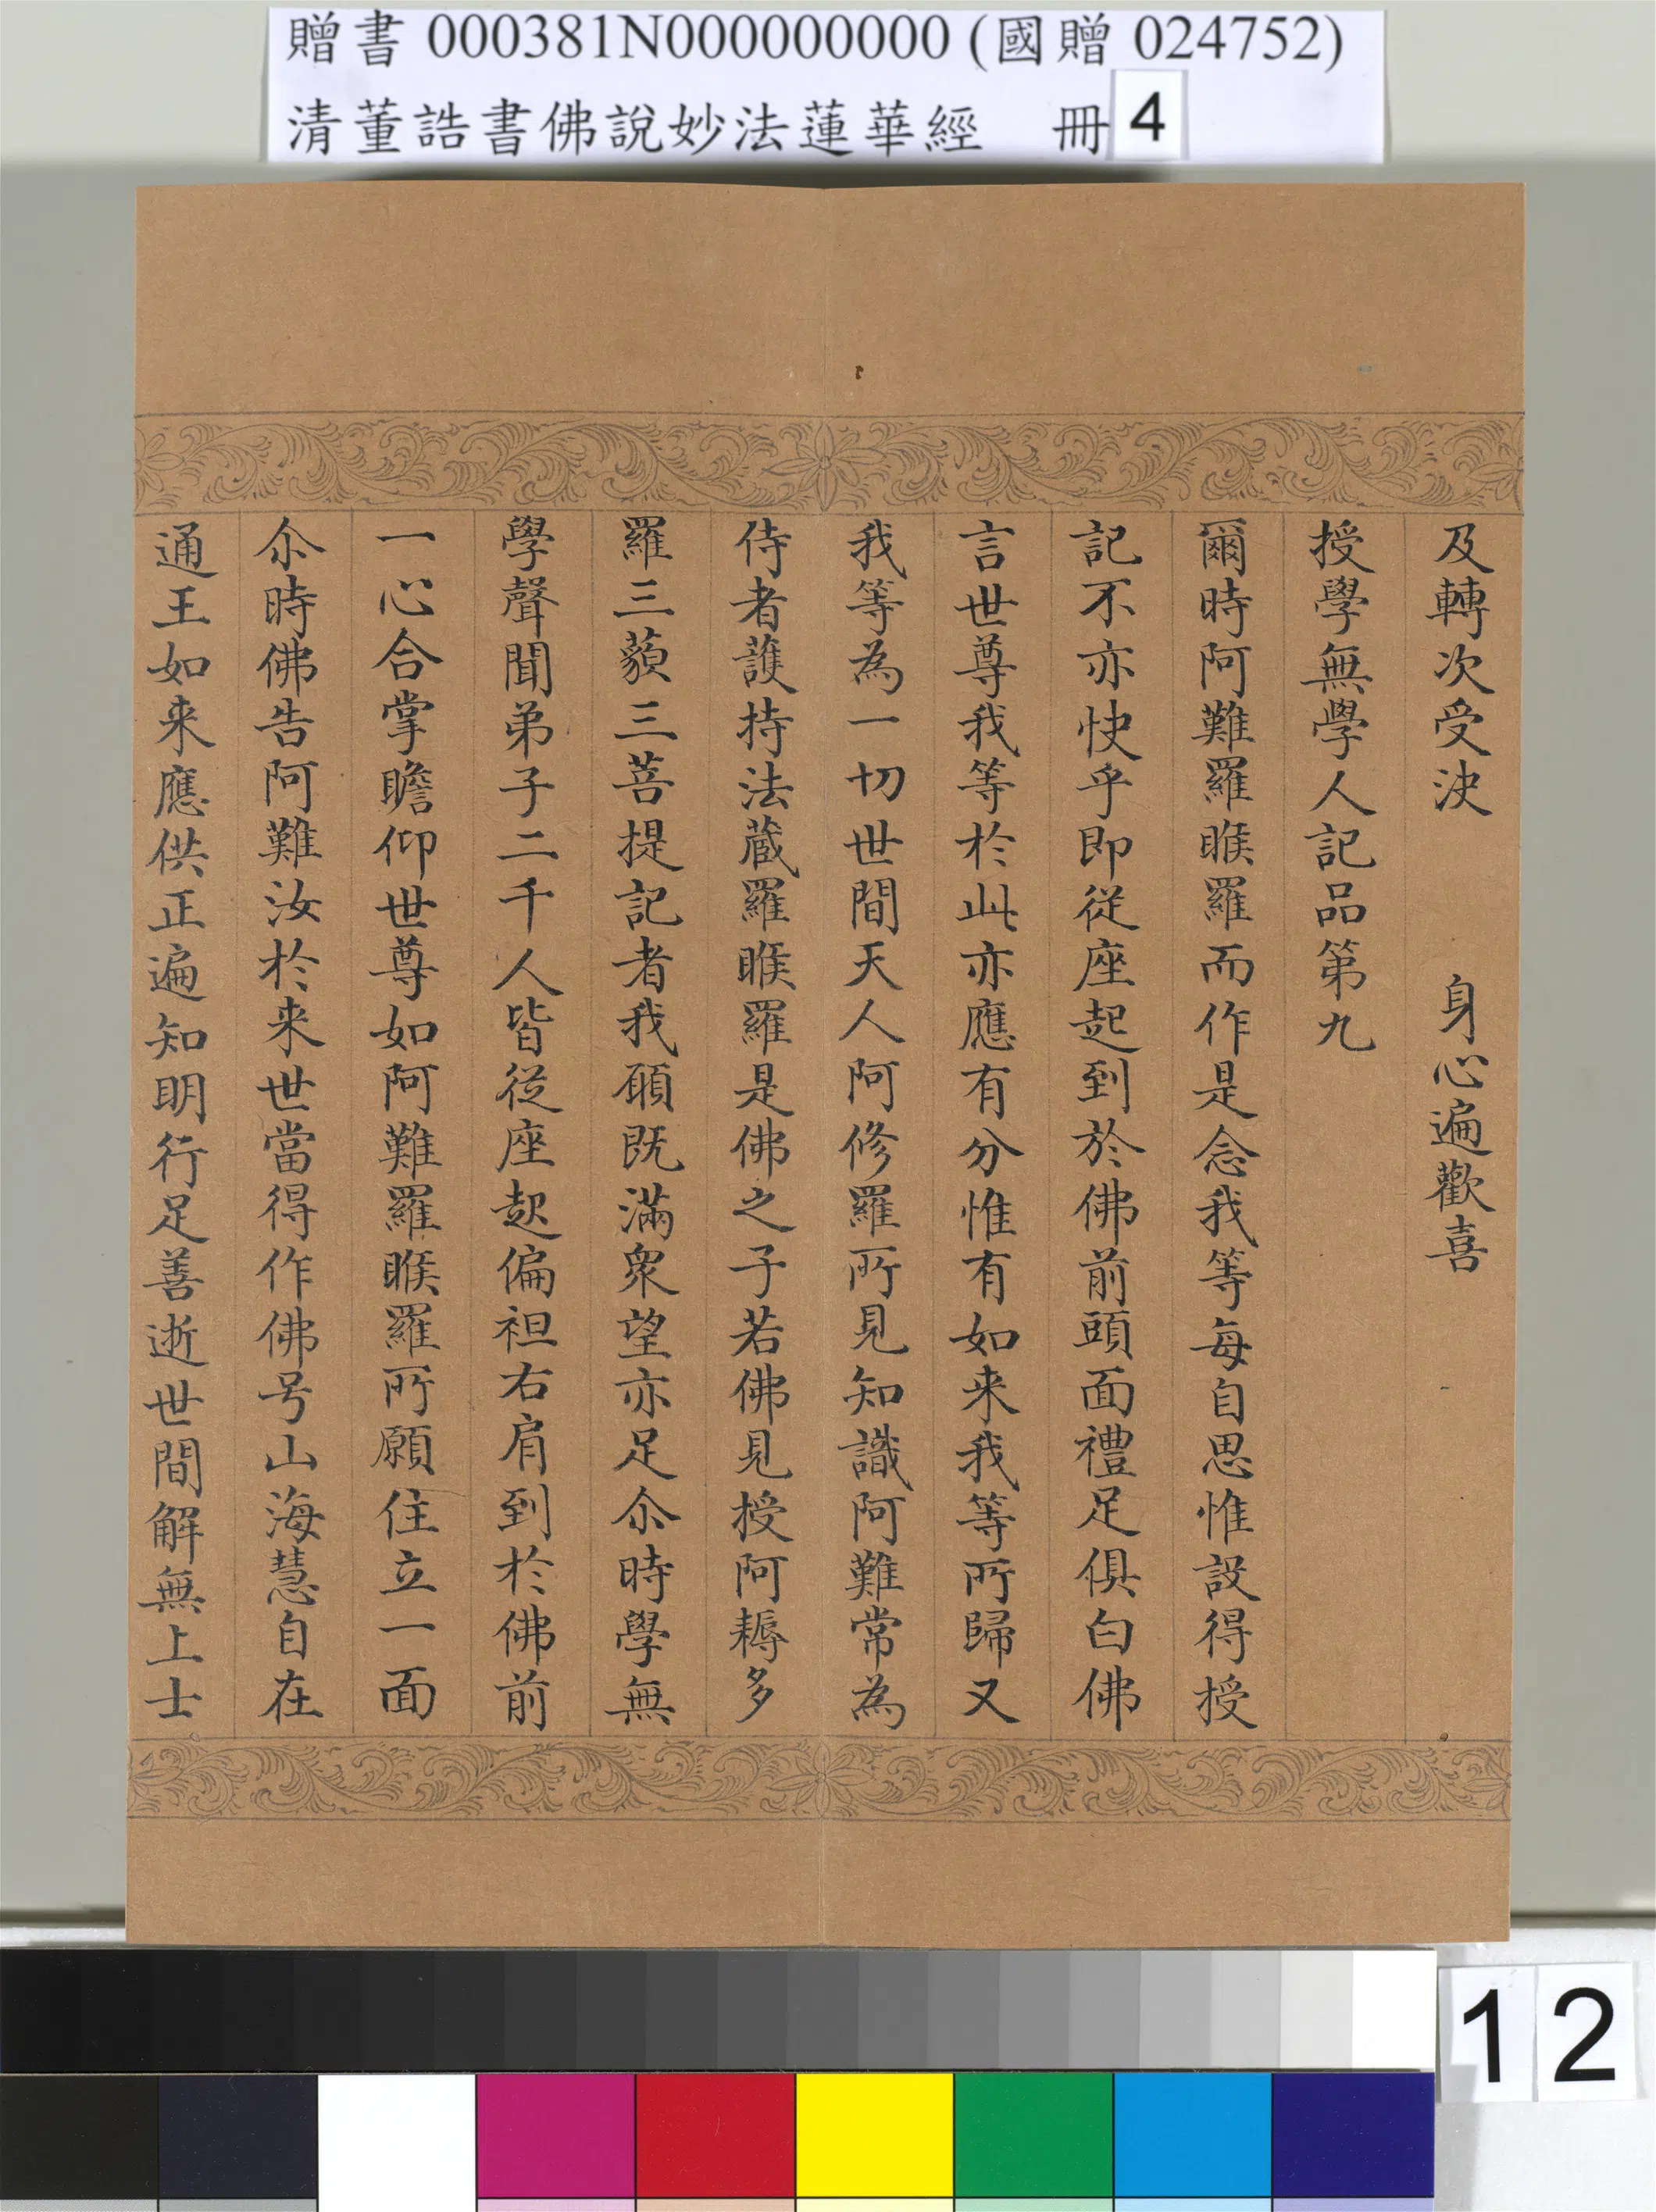 贈書 000381N000000000 (國贈 024752)
清董誥書佛說妙法蓮華經 冊 4
及轉次受決 身心遍歡喜
授學無學人記品第九
爾時阿難羅睺羅而作是念我等每自思惟設得授
記不亦快乎即從座起到於佛前頭面禮足俱白佛
言世尊我等於此亦應有分惟有如来我等所歸又
我等為一切世間天人阿修羅所見知識阿難常為
侍者護持法蔵羅睺羅是佛之子若佛見授阿耨多
羅三藐三菩提記者我願既滿衆望亦足尒時學無
學聲聞弟子二千人皆從座起偏袒右肩到於佛前
一心合掌瞻仰世尊如阿難羅睺羅所願住立一面
尒時佛告阿難汝於来世當得作佛号山海慧自在
通王如来應供正遍知明行足善逝世間解無上士
12